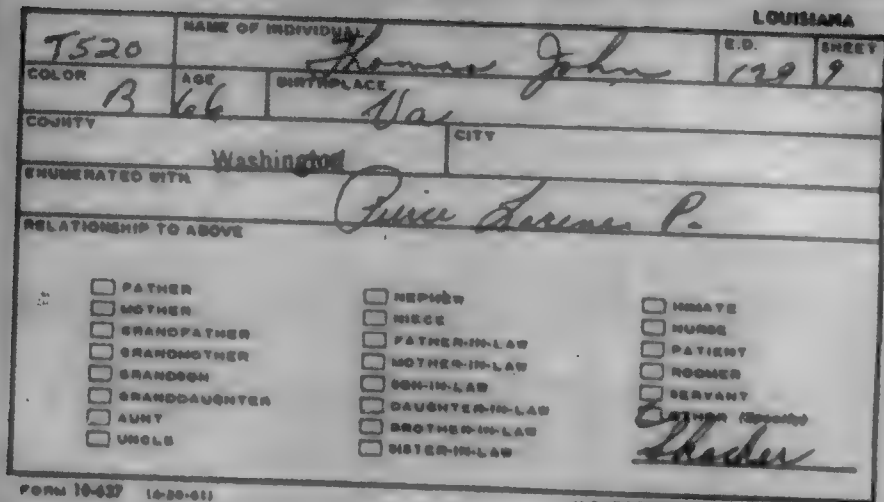 LOUISIANA
T520 NAME OF INDIVIDUAL Thomas John E.D. 129 SHEET 9
COLOR B AGE 66 BIRTHPLACE Va
COUNTY Washington CITY
ENUMERATED WITH Pierce P.
RELATIONSHIP TO ABOVE
FATHER
MOTHER
GRANDFATHER
GRANDMOTHER
GRANDSON
GRANDDAUGHTER
AUNT
UNCLE
NEPHEW
NIECE
FATHER-IN-LAW
MOTHER-IN-LAW
SON-IN-LAW
DAUGHTER-IN-LAW
BROTHER-IN-LAW
SISTER-IN-LAW
INMATE
NURSE
PATIENT
ROOMER
SERVANT
OTHER (Specify)
FORM 10-637 (6-20-61)